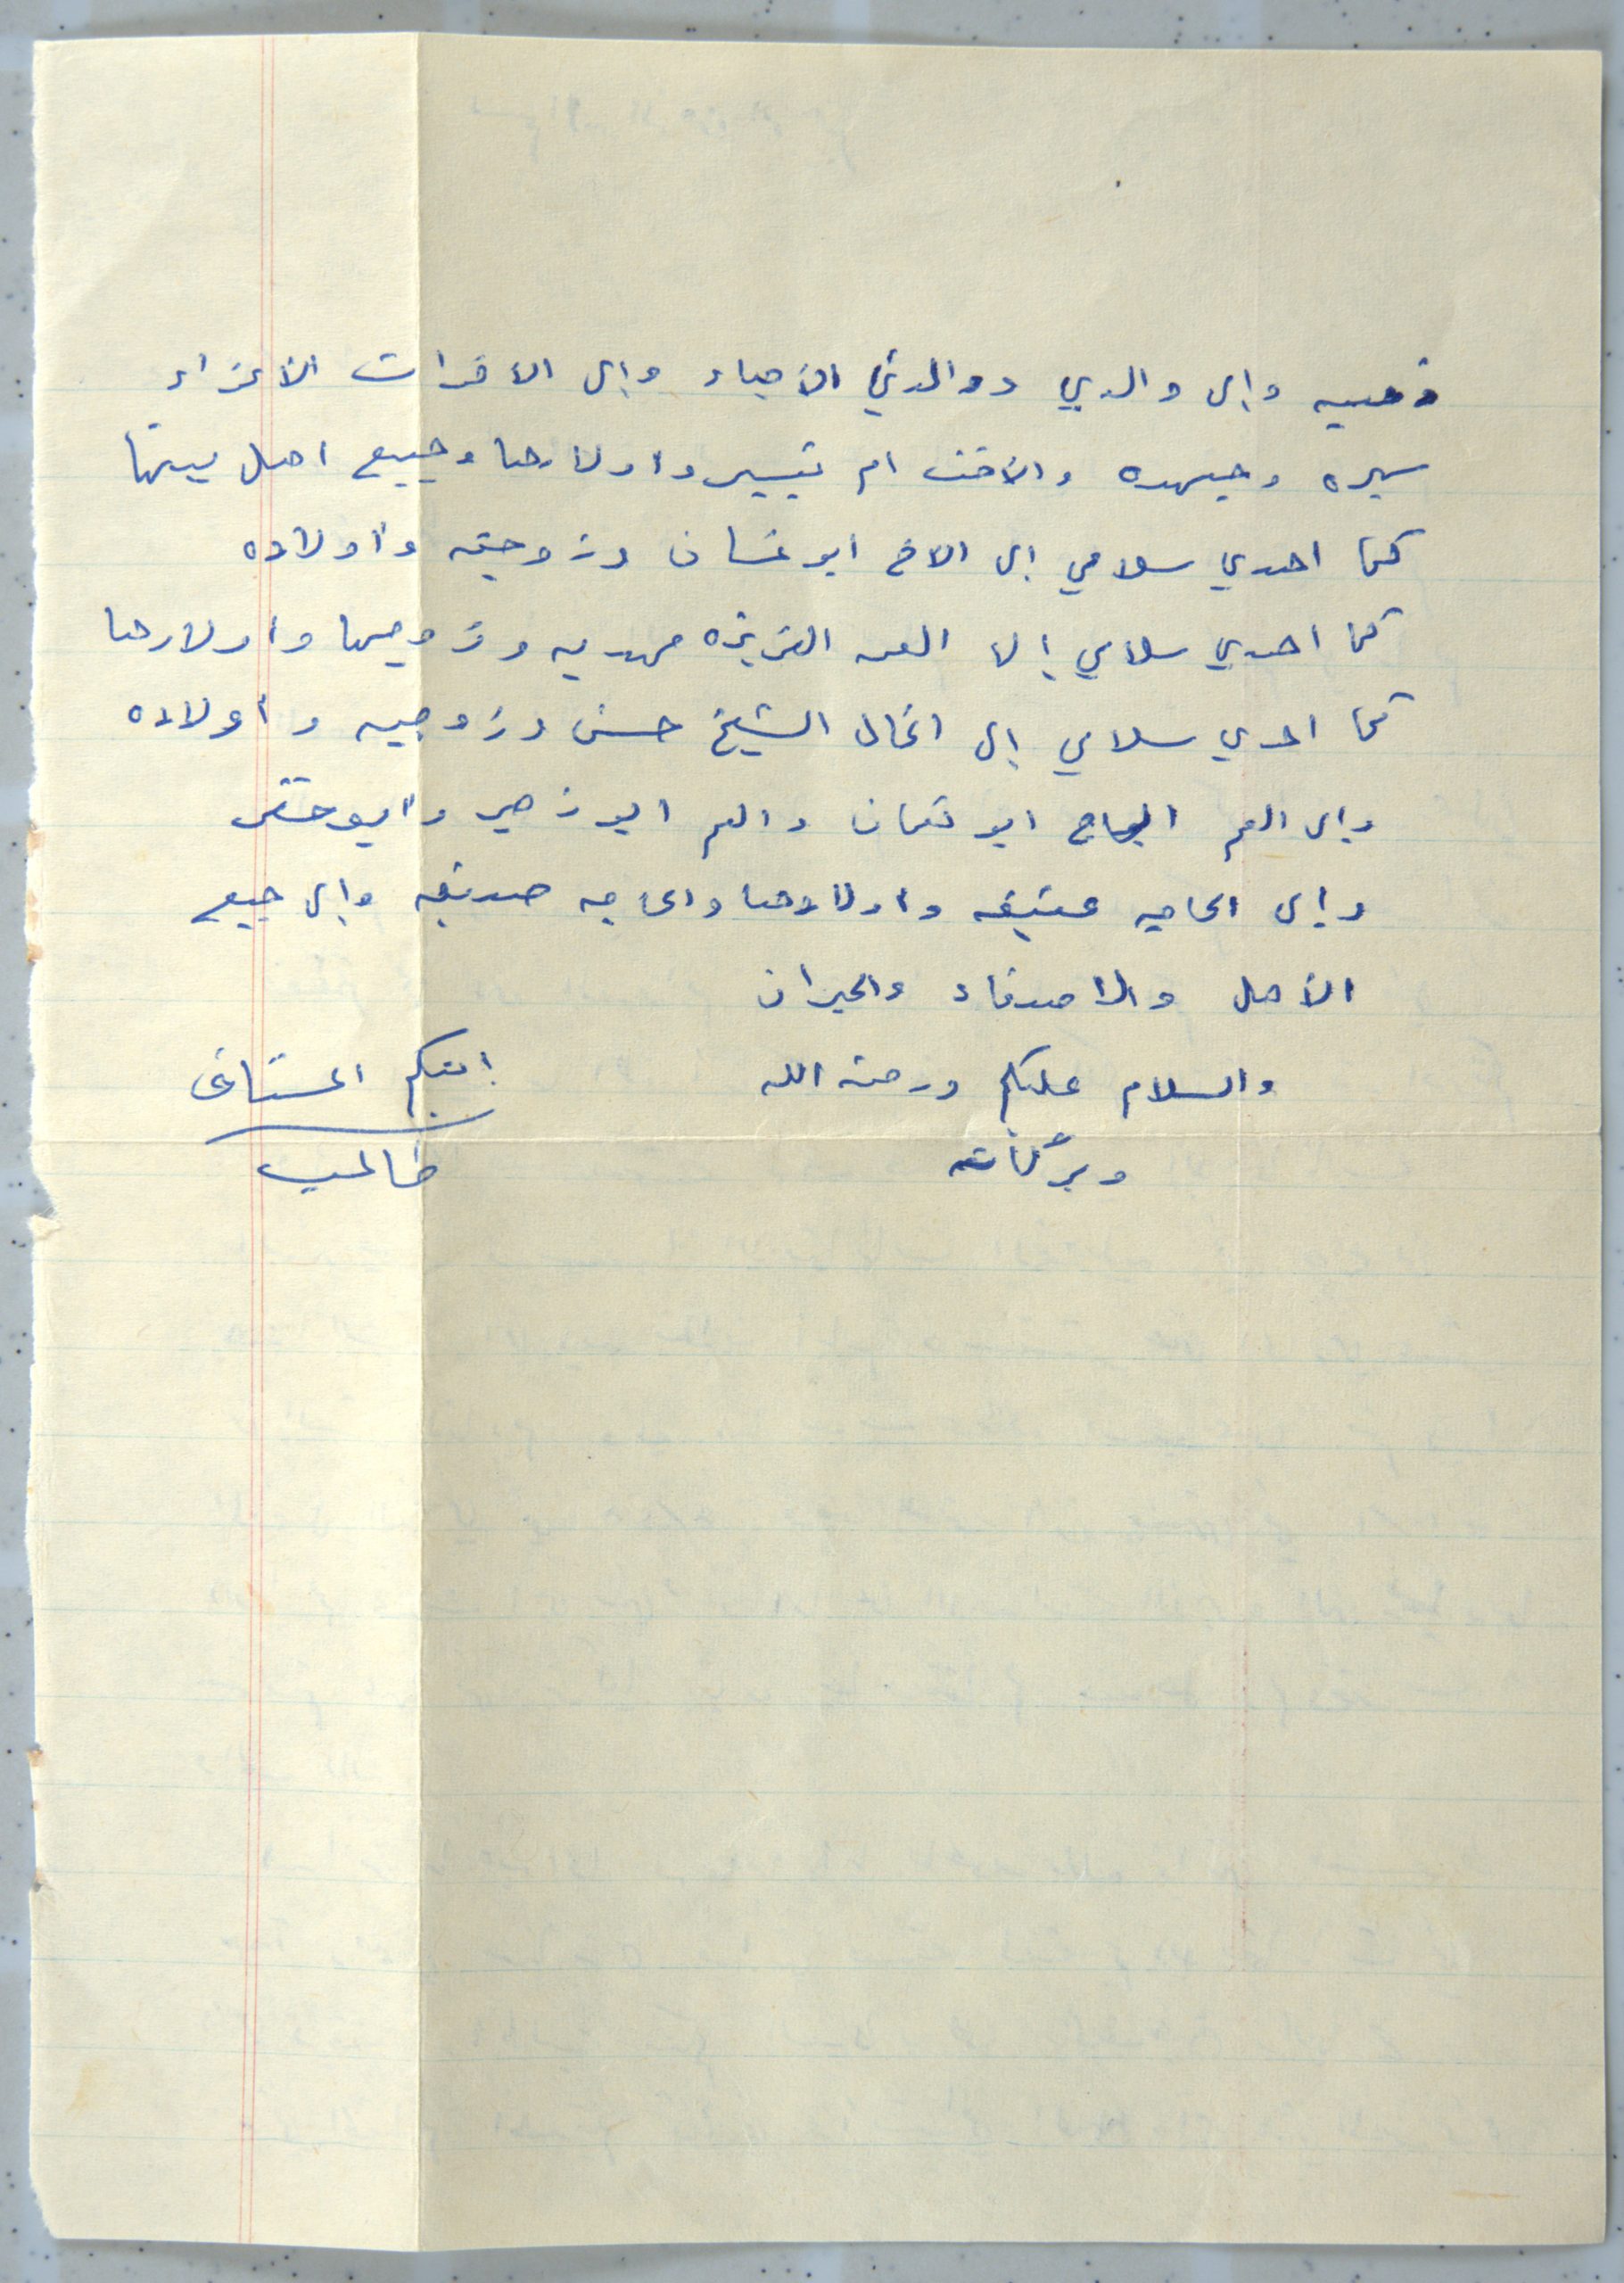 وإلى والدي ووالدتي الأحباء وإلى الأخوات الأعزاء
سميره وجيهده والأخت ام تيسير واولادها وجميع اهل بيتها
كما اهدي سلامي إلى الاخ ابو غسان وزوجته وأولاده
كما اهدي سلامي إلا العمه العزيزه مهديه وزوجها واولادها
كما اهدي سلامي إلى الخال الشيخ حسن وزوجته وأولاده
وإلى العم الحاج ابو نعمان والعم ابو زهير وابو حنفي
وإلى الحاجه عتيقه واولادها والحاجه صديقه وإلى جميع
الأهل والأصدقاء والجيران
والسلام عليكم ورحمة الله
وبركاته
ابنكم المشتاق
طالب